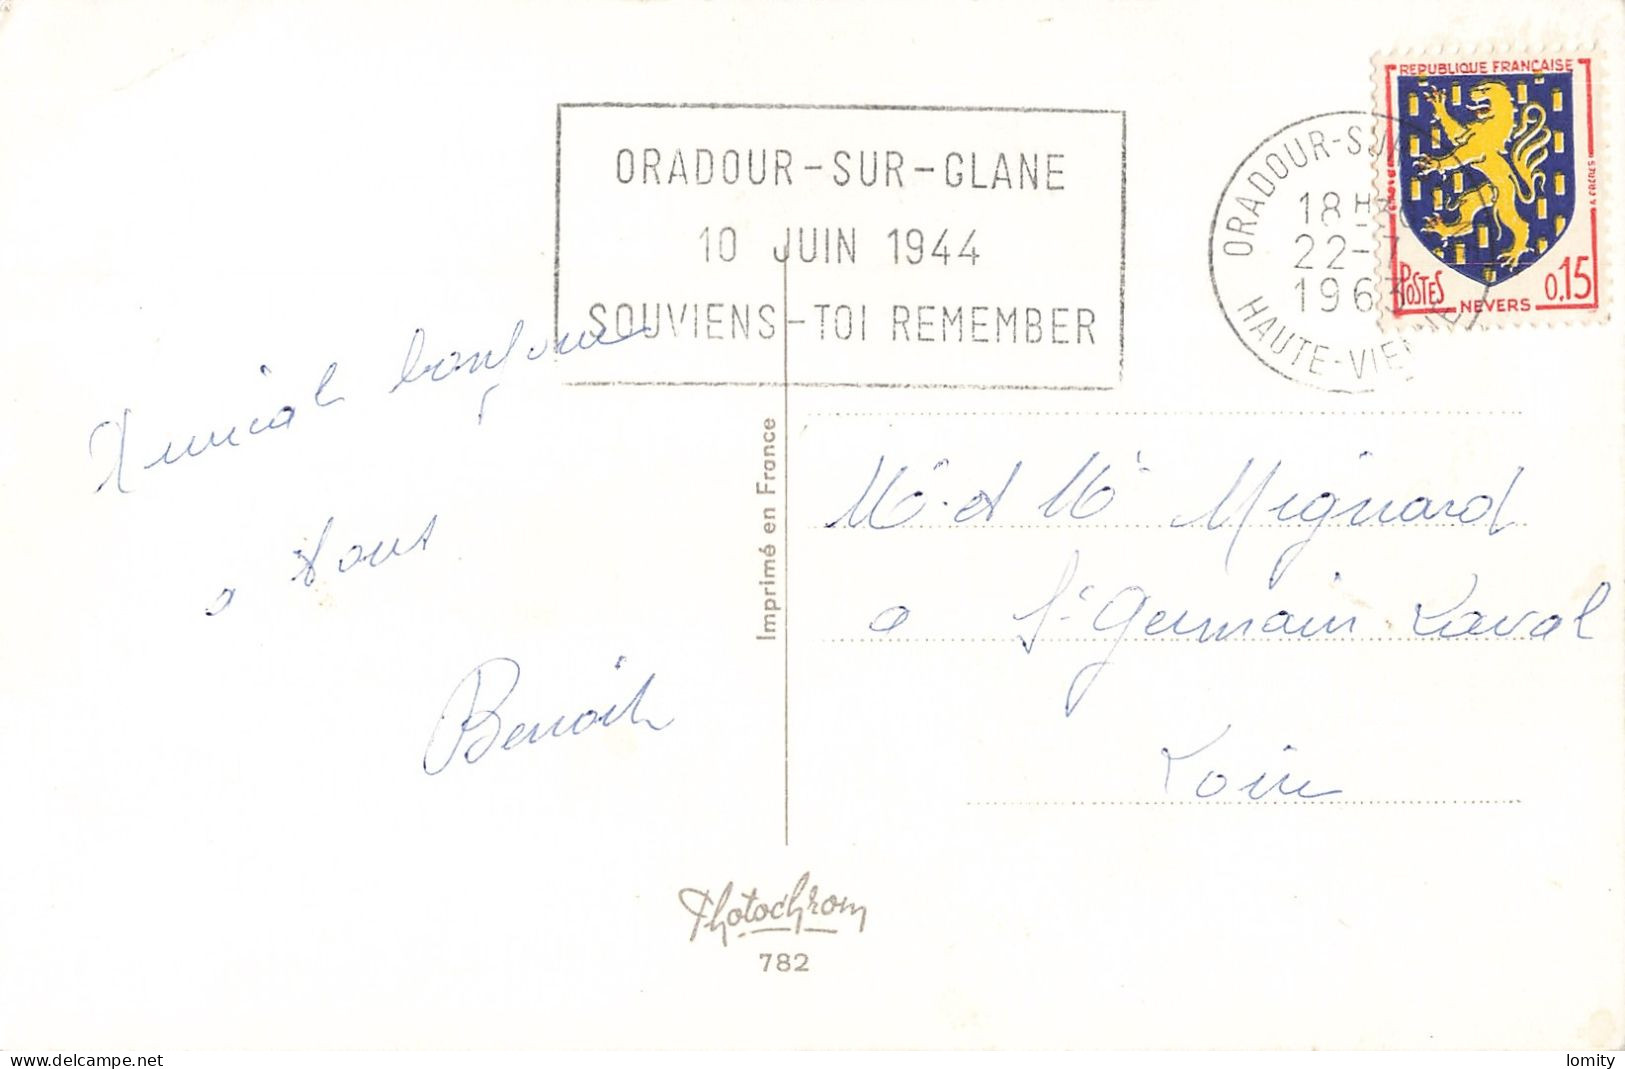 ORADOUR-SUR-GLANE
10 JUIN 1944
SOUVIENS-TOI REMEMBER
ORADOUR-SUR
18H
22-7
1963
HAUTE-VIENNE
REPUBLIQUE FRANÇAISE
POSTES
NEVERS
0,15
Amical bonjour
a tous
Benoit
Imprimé en France
Mr et Me Mignard
a St Germain Laval
Loire
Photochrom
782
delcampe.net
lomity